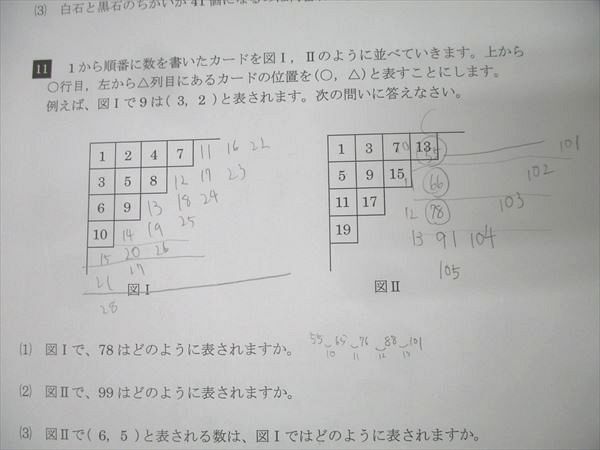 (3) 白石と黒石のちがいが41個になるの
11 1から順番に数を書いたカードを図Ⅰ，Ⅱのように並べていきます。上から
○行目，左から△列目にあるカードの位置を(○，△)と表すことにします。
例えば、図Ⅰで9は( 3, 2 )と表されます。次の問いに答えなさい。
1 2 4 7 11 16 22
3 5 8 12 17 23
6 9 13 18 24
10 14 19 25
15 20 26
21 27
28
図Ⅰ
1 3 7 13 101
5 9 15 66 102
11 17 12 78 103
19 13 91 104
105
図Ⅱ
(1) 図Ⅰで、78はどのように表されますか。 55 65 76 88 101
10 11 12 13
(2) 図Ⅱで、99はどのように表されますか。
(3) 図Ⅱで( 6, 5 )と表される数は、図Ⅰではどのように表されますか。